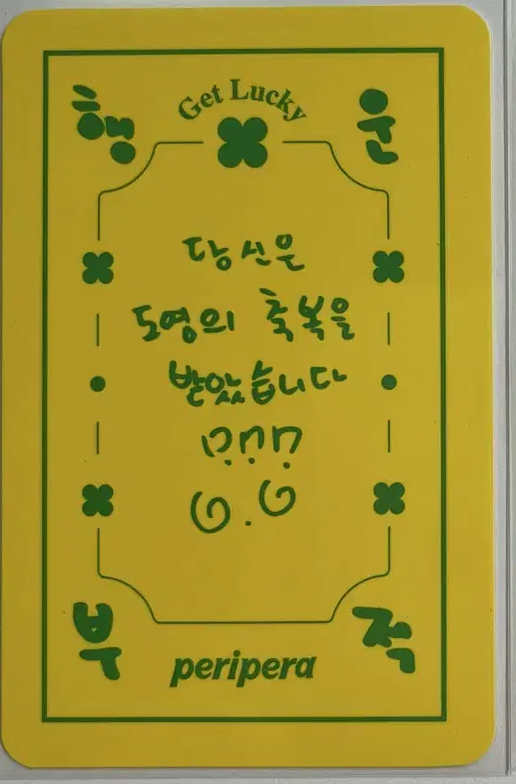 행 Get Lucky 운
당신은
도영의 축복을
받았습니다
부 peripera 적